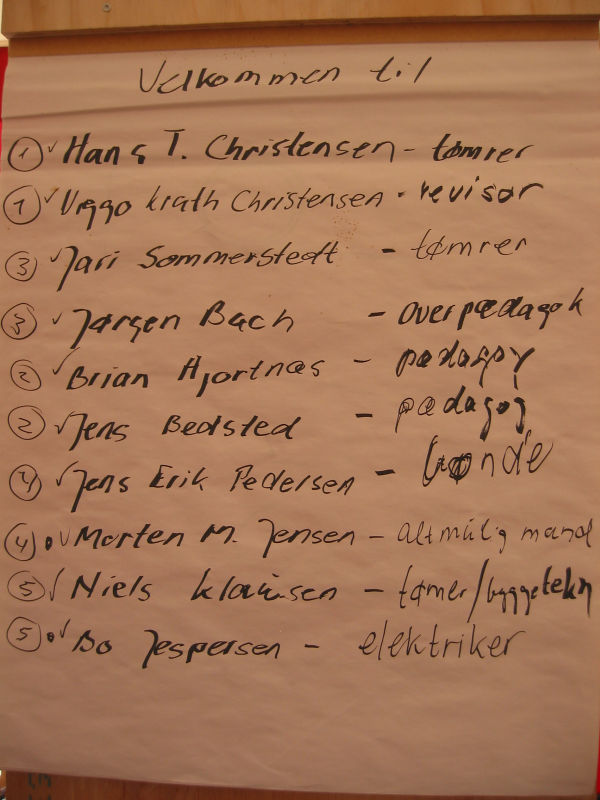 Velkommen til
1 ✓ Hans T. Christensen - tømrer
1 ✓ Viggo Krath Christensen - revisor
3 ✓ Jari Sommerstedt - tømrer
3 ✓ Jørgen Bach - overpædagok
2 ✓ Brian Hjortnæs - pædagog
2 ✓ Jens Bedsted - pædagog
4 ✓ Jens Erik Pedersen - bonde
4 • ✓ Morten M. Jensen - altmulig mand
5 ✓ Niels Klausen - tømer/byggetekn
5 • ✓ Bo Jespersen - elektriker